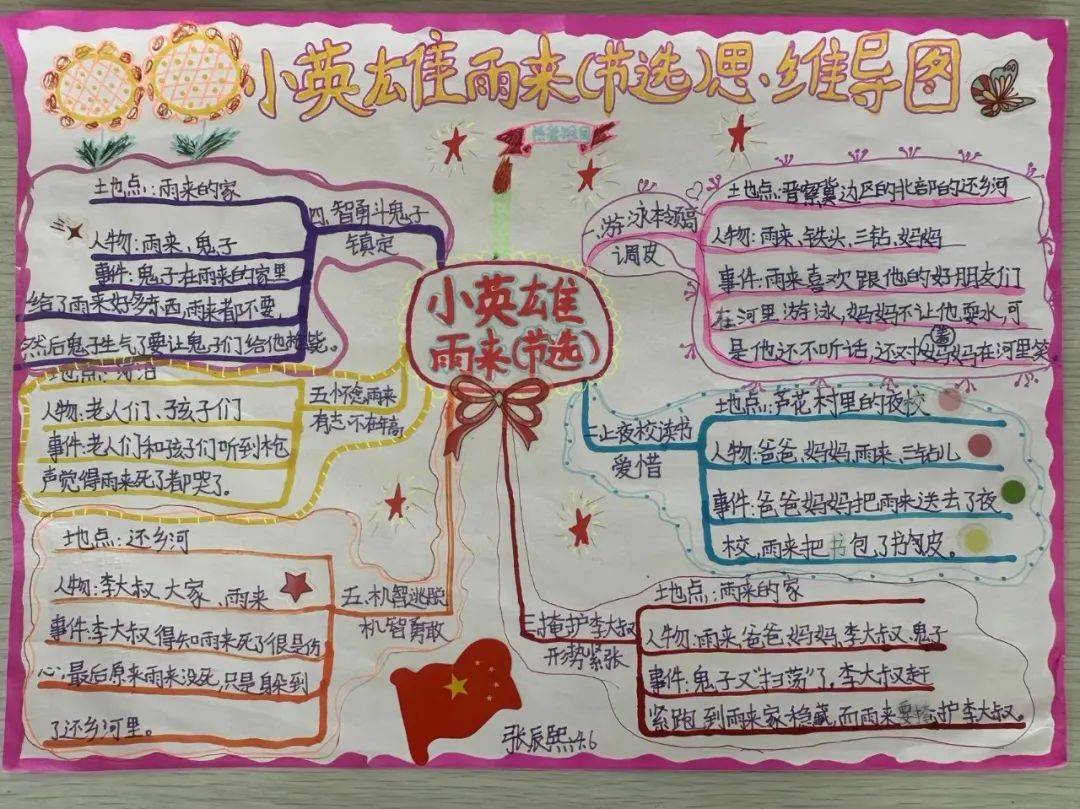 小英雄雨来(节选)思维导图
热爱祖国
小英雄
雨来(节选)
一.游泳本领高
调皮
土地点:晋察冀边区的北部的还乡河
人物:雨来,铁头,三钻,妈妈
事件:雨来喜欢跟他的好朋友们
在河里游泳,妈妈不让他耍水,可
是他还不听话,还对着妈妈在河里笑
二.上夜校读书
爱惜
土地点:芦花村里的夜校
人物:爸爸,妈妈,雨来,三钻儿
事件:爸爸妈妈把雨来送去了夜
校,雨来把书包了书包皮。
三掩护李大叔
形势紧张
土地点:雨来的家
人物:雨来,爸爸,妈妈,李大叔,鬼子
事件:鬼子又"扫荡"了,李大叔赶
紧跑到雨来家稳藏,而雨来要掩护李大叔。
四.智勇斗鬼子
镇定
土地点:雨来的家
人物:雨来,鬼子
事件:鬼子在雨来的家里
给了雨来好多东西,雨来都不要,
然后鬼子生气了要让鬼子们给他枪毙。
五怀念雨来
有志不在年高
地点:河沿
人物:老人们、孩子们
事件:老人们和孩子们听到枪
声觉得雨来死了都哭了。
五.机智逃脱
机智勇敢
地点:还乡河
人物:李大叔、大家、雨来
事件:李大叔得知雨来死了很是伤
心,最后原来雨来没死,只是躲到
了还乡河里。
张辰熙4.6